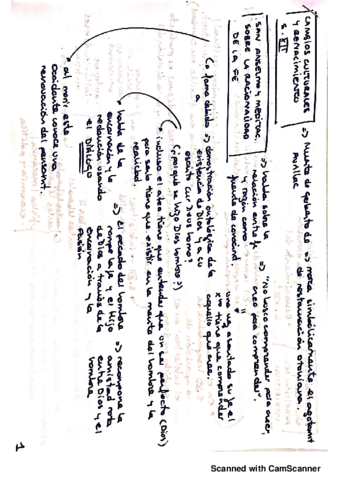 CAMBIOS CULTURALES
Y RENACIMIENTO
S. XII
=> Muerte de Gilberto de
Aurillac
=> marca simbólicamente el agotamt
de restauración otoniana.
SAN ANSELMO Y MEDITAC.
SOBRE LA RACIONALIDAD
DE LA FE
=> Habla sobre la
relación entre fe
y razón como
fuente de conocimt.
=> "No busco comprender para creer,
creo para comprender".
una vez asentado su fe el
xº tiene que comprender
aquello que cree.
fama debido a
=> demostración ontológica de la
existencia de Dios y a su
escrito Cur Deus homo?
(¿por qué se hizo Dios hombre?)
incluso el ateo tiene que entender que un ser perfecto (Dios)
para serlo tiene que existir en la mente del hombre y la
realidad
habla de la
encarnación y la
redención usando
el DIÁLOGO
=> El pecado del hombre
rompe y el Hijo
de Dios a través de la
encarnación y la
Pasión
=> recompone la
amistad rota
entre Dios y el
hombre.
al morir este
Occidente conoce una
renovación del pensamt.
1
Scanned with CamScanner